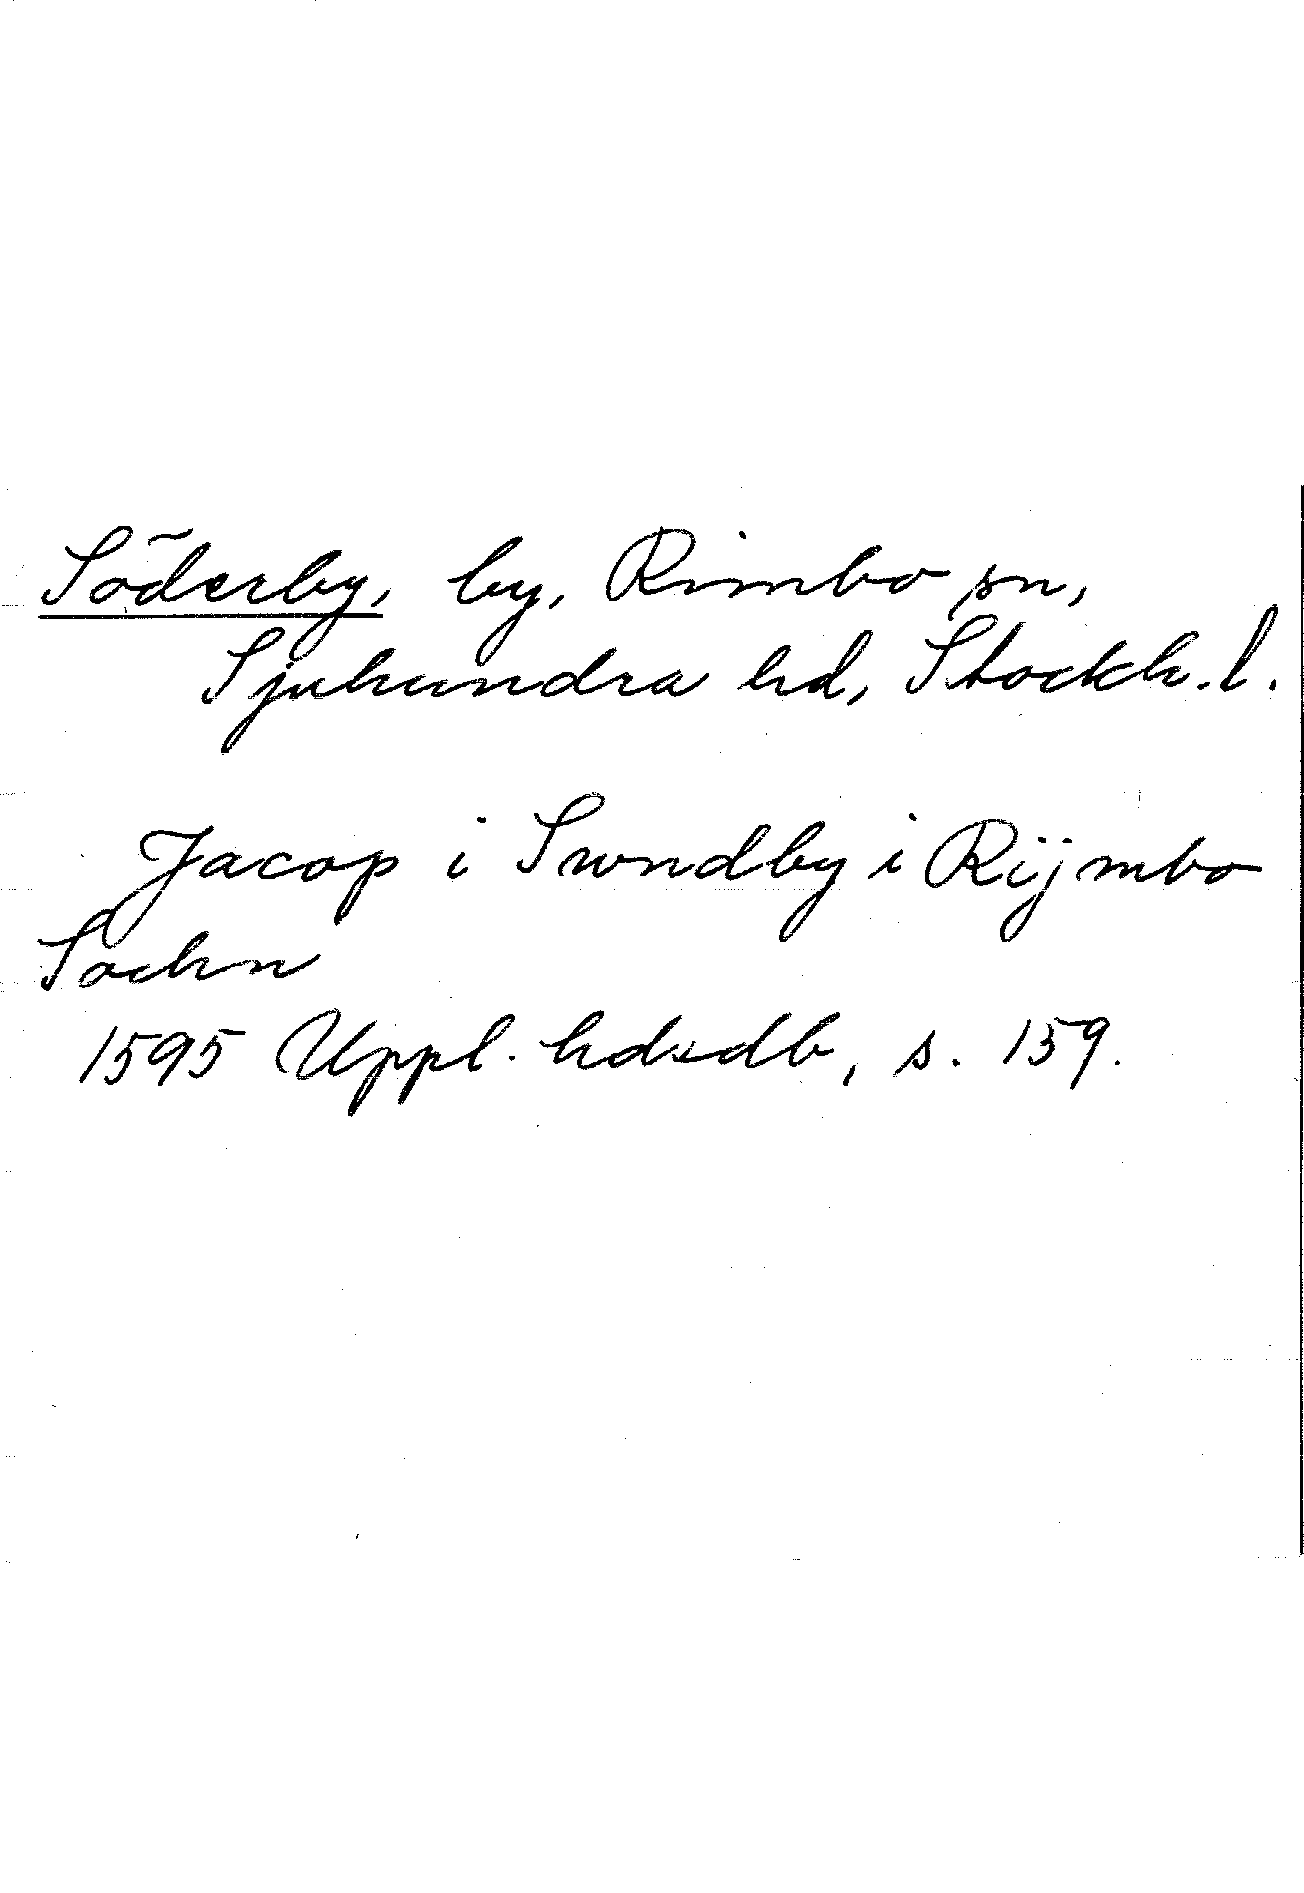 Söderby, by, Rimbo sn,
Sjuhundra hd, Stockh. l.
Jacop i Swndby i Rijmbo
Sochn
1595 Uppl. hdsdb, s. 159.